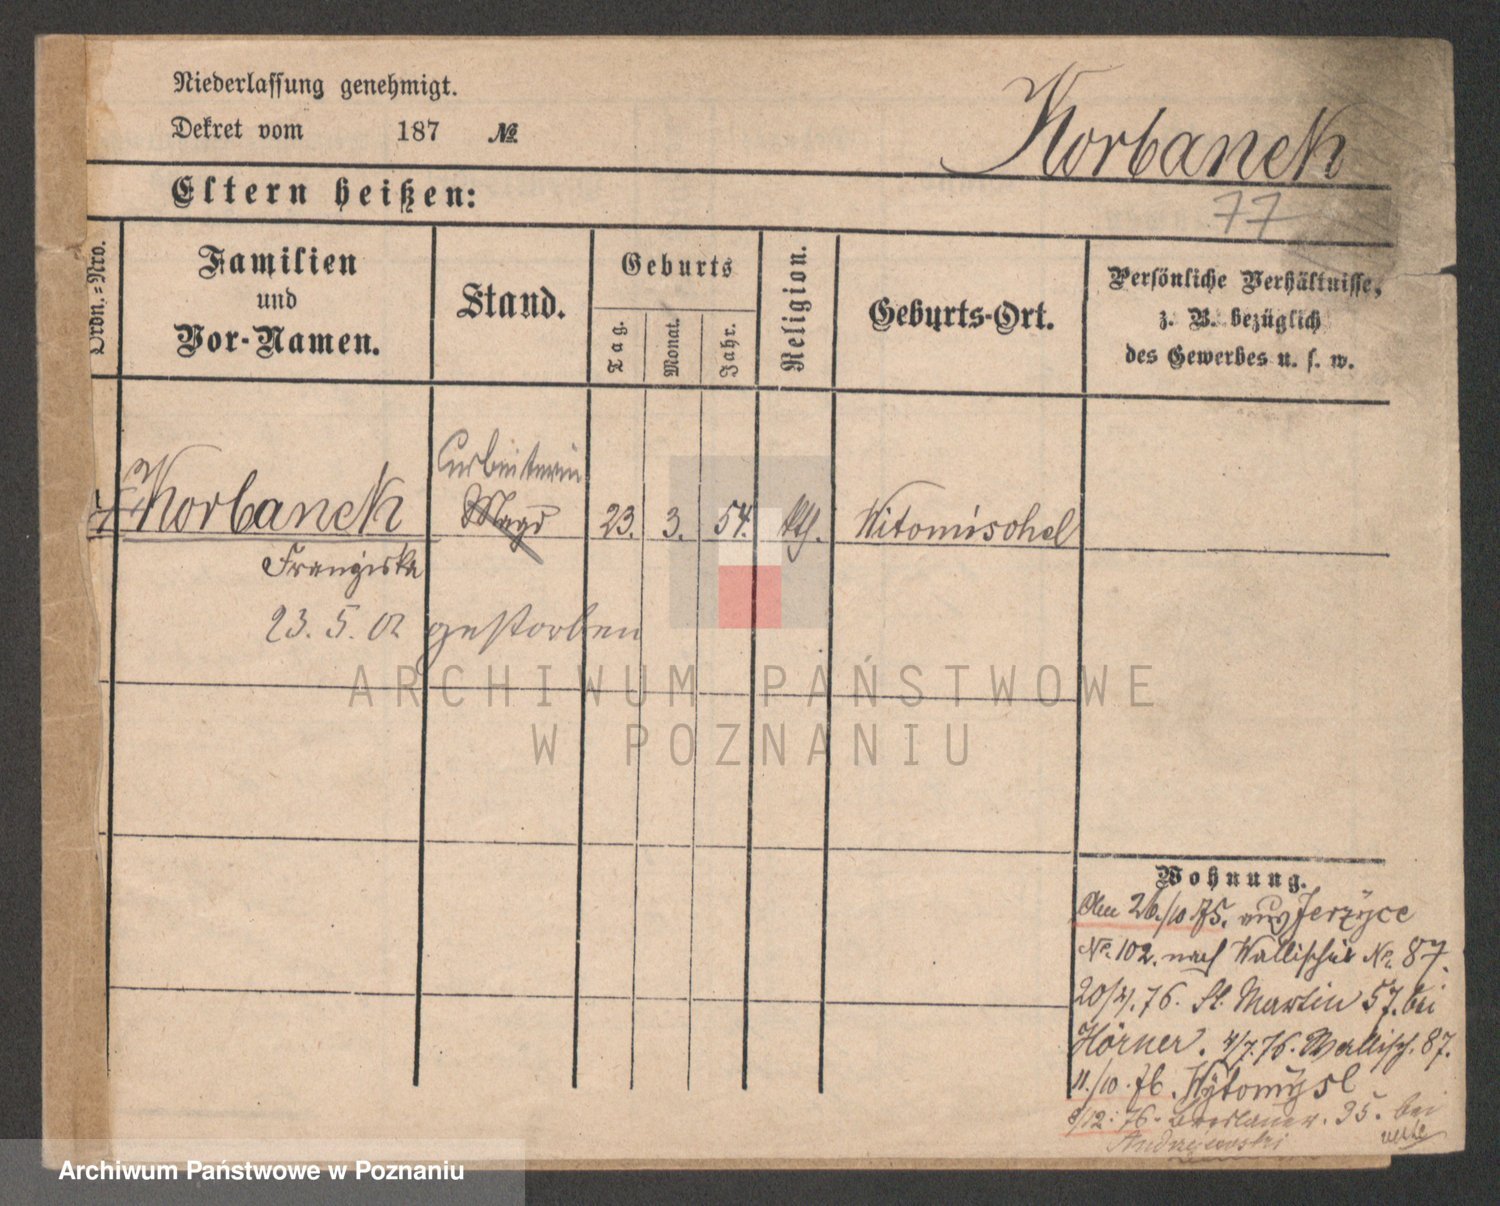 Niederlassung genehmigt.
Dekret vom 187 №
Korbanek
77
Eltern heißen:
Ordn.=Nro.
Familien und Vor-Namen.
Stand.
Geburts
Tag.
Monat.
Jahr.
Religion.
Geburts-Ort.
Persönliche Verhältnisse,
z. B. bezüglich
des Gewerbes u. s. w.
Arbeiterin
Korbanek Magd 23. 3. 54. kth. Witomischel
Franziska
23. 5. 02 gestorben
ARCHIWUM PAŃSTWOWE
W POZNANIU
Wohnung.
Am 26./10 75. aus Jerzyce
No. 102. nach Wallischei No. 87.
20/4. 76. St. Martin 57. bei
Hörner. 4/7. 76. Wallisch. 87.
11./10. 76. Wytomysl
8/12. 76. Breslauer. 35. bei
Andrzejewski
Archiwum Państwowe w Poznaniu